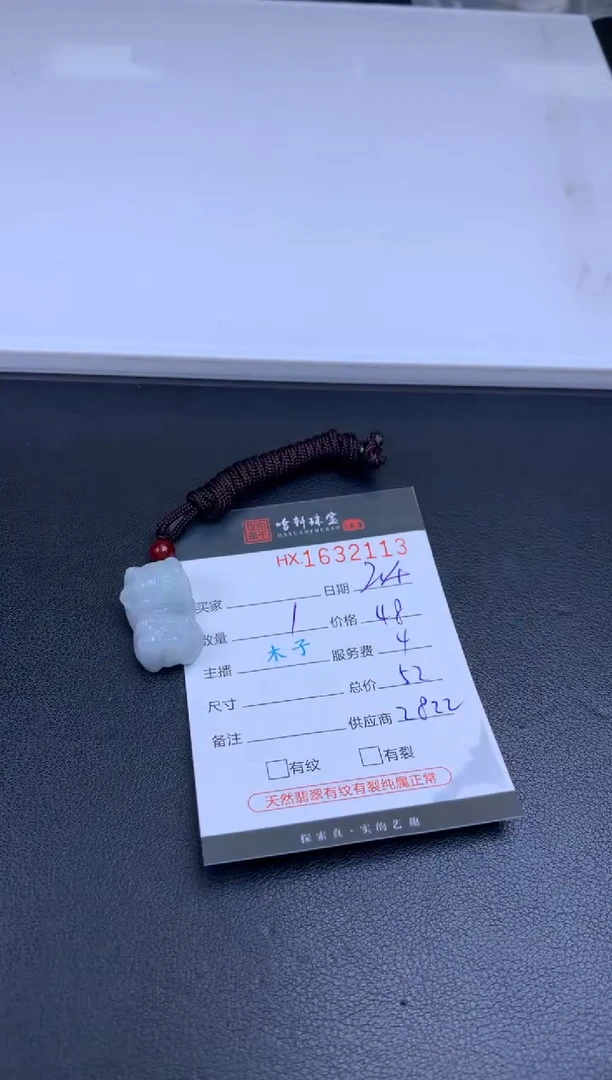 哈轩珠宝
HAXUANZHUBAO
HX.1632113
买家 日期 24
数量 1 价格 48
主播 木子 服务费 4
尺寸 总价 52
备注 供应商 2822
有纹 有裂
天然翡翠有纹有裂纯属正常
探索真·实的艺趣